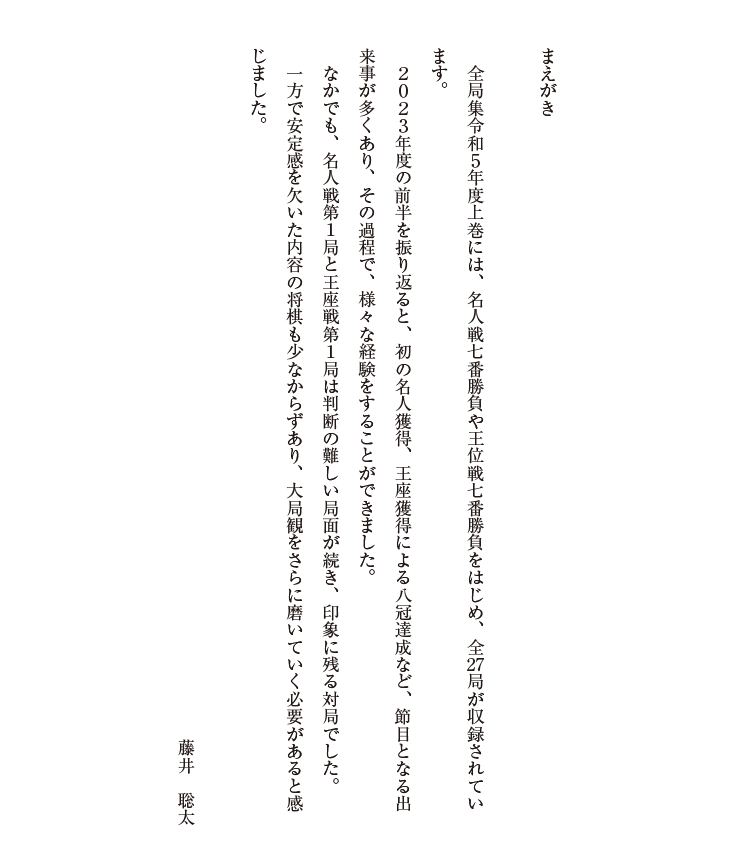 まえがき
　全局集令和５年度上巻には、名人戦七番勝負や王位戦七番勝負をはじめ、全27局が収録されてい
ます。
　２０２３年度の前半を振り返ると、初の名人獲得、王座獲得による八冠達成など、節目となる出
来事が多くあり、その過程で、様々な経験をすることができました。
　なかでも、名人戦第１局と王座戦第１局は判断の難しい局面が続き、印象に残る対局でした。
　一方で安定感を欠いた内容の将棋も少なからずあり、大局観をさらに磨いていく必要があると感
じました。
藤井　聡太